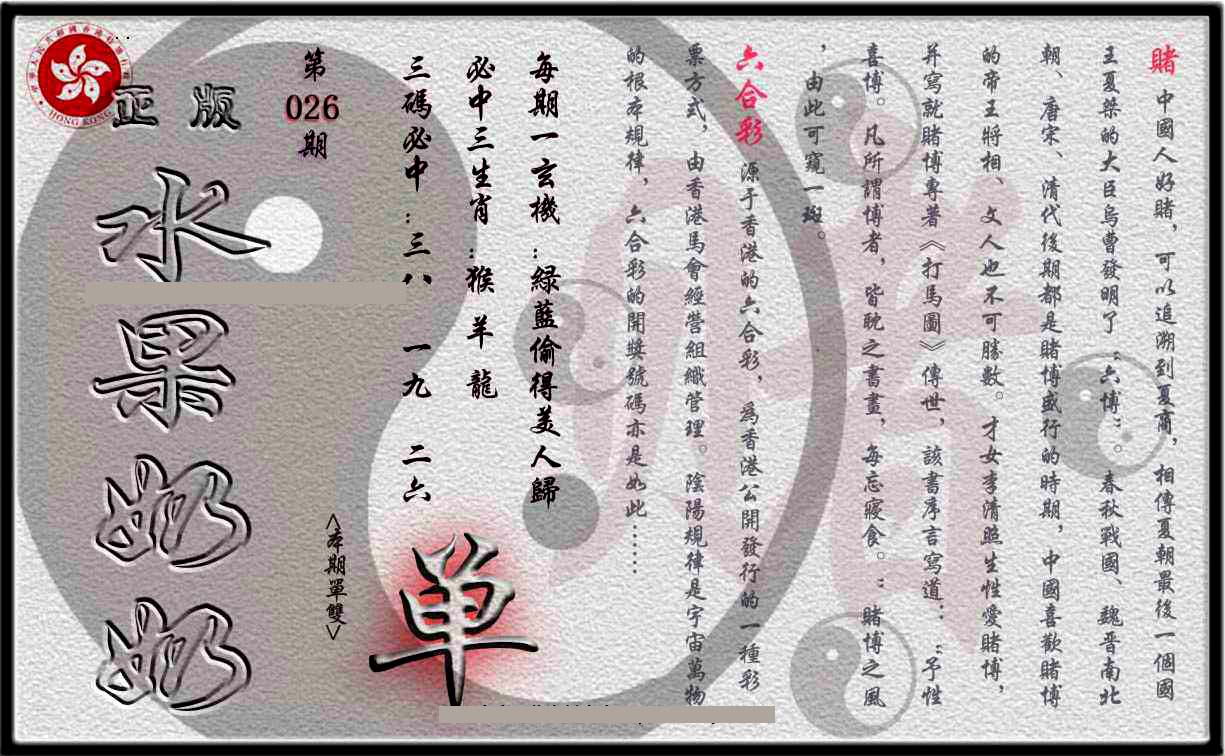 賭 中國人好賭，可以追溯到夏商，相傳夏朝最後一個國
王夏桀的大臣烏曹發明了“六博”。春秋戰國、魏晋南北
朝、唐宋、清代後期都是賭博盛行的時期，中國喜歡賭博
的帝王將相、文人也不可勝數。才女李清照生性愛賭博，
并寫就賭博專著《打馬圖》傳世，該書序言寫道：“予性
喜博。凡所謂博者，皆耽之書畫，每忘寢食。”賭博之風
，由此可窺一斑。
六合彩 源于香港的六合彩，為香港公開發行的一種彩
票方式，由香港馬會經營組織管理。陰陽規律是宇宙萬物
的根本規律，六合彩的開獎號碼亦是如此……
每期一玄機：綠藍偷得美人歸
必中三生肖：猴 羊 龍
三碼必中：三八 一九 二六
单
第
026
期
<本期單雙>
正版
水果奶奶
HONG KONG